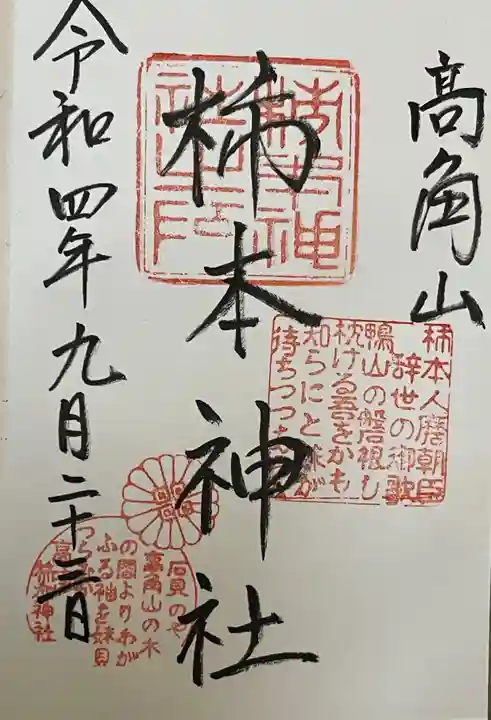 高角山
柿本神社
令和四年九月二十三日
柿本人麿朝臣
辞世の御歌
鴨山の磐根し
枕ける吾をかも
知らにと妹が
待ちつつ
石見のや
高角山の木
の間よりわが
ふる袖を妹見
つらむか
高
柿本神社